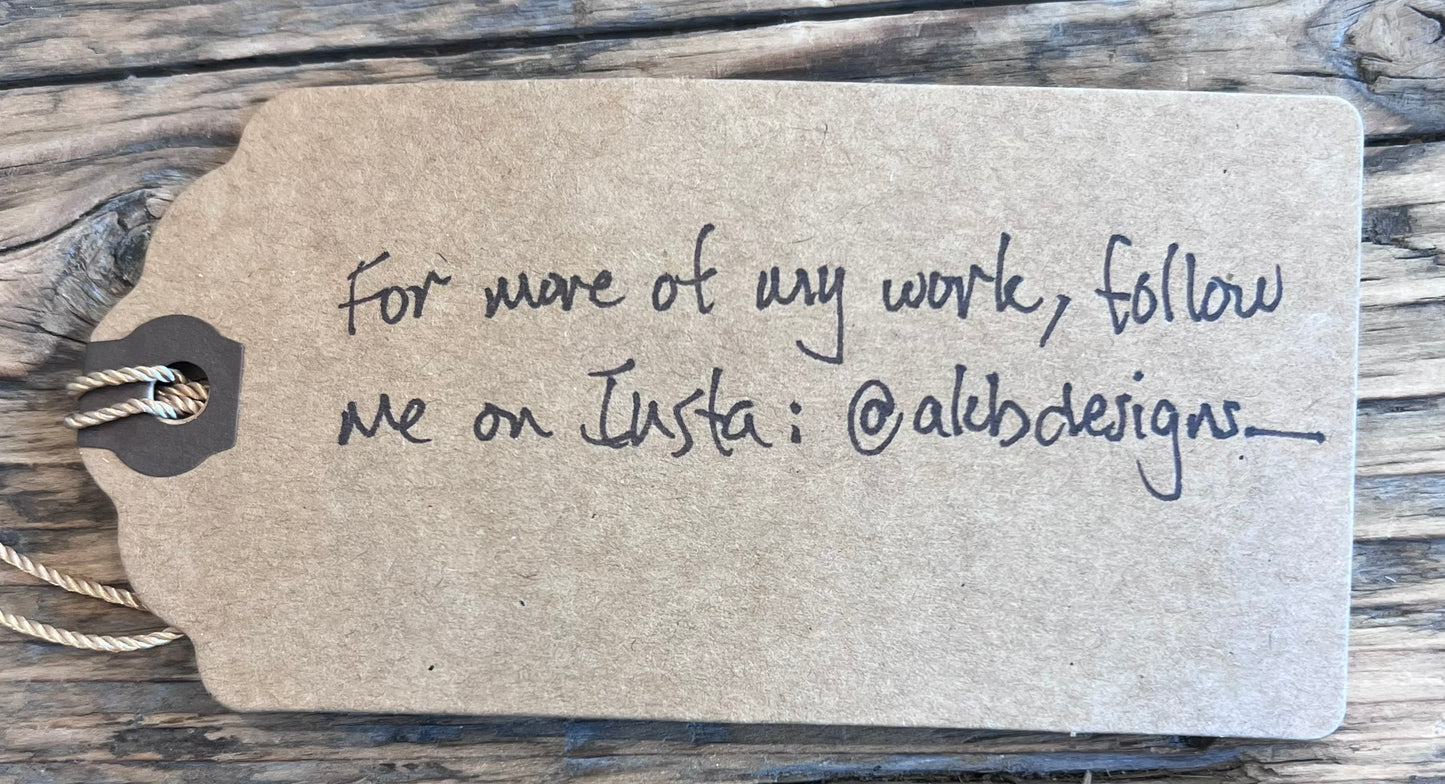 For more of my work, follow
me on Insta: @akbdesigns_